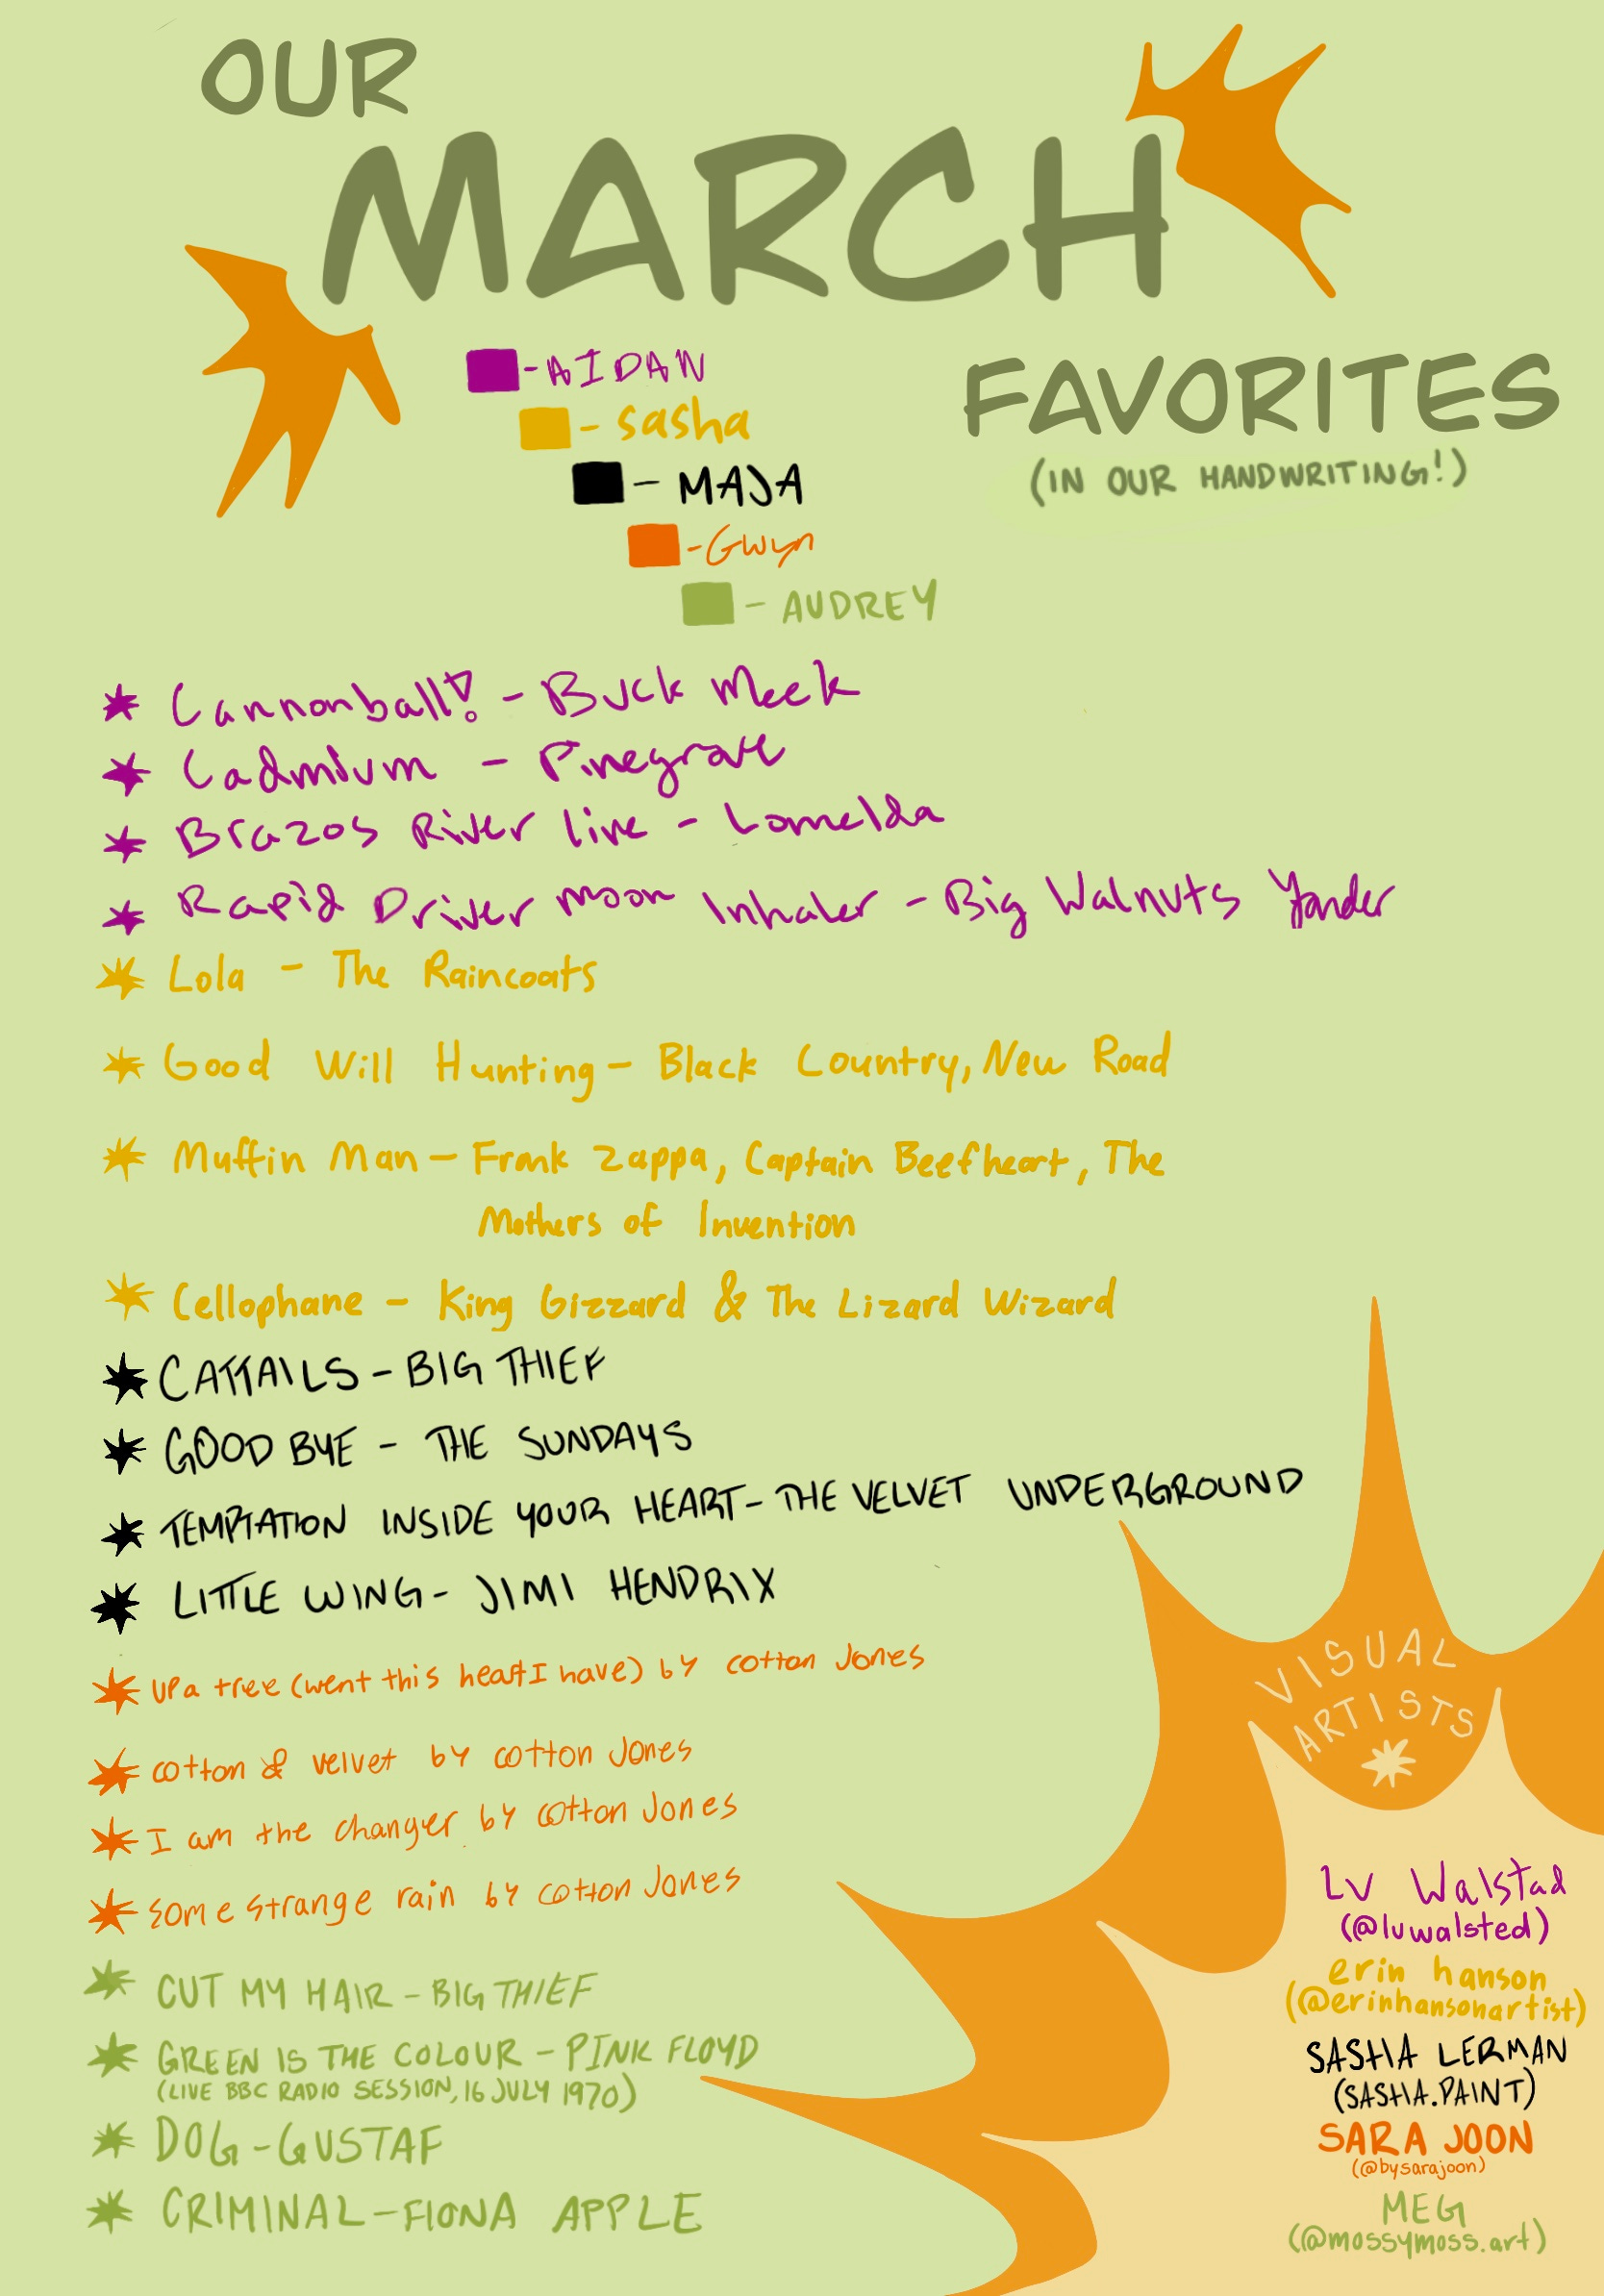 OUR
MARCH
FAVORITES
(IN OUR HANDWRITING!)
- AIDAN
- sasha
- MAJA
- Gwyn
- AUDREY
Cannonball! - Buck Meek
Cadmium - Pinegrove
Brazos River live - Lomelda
Rapid Driver Moon Inhaler - Big Walnuts Yonder
Lola - The Raincoats
Good Will Hunting - Black Country, New Road
Muffin Man - Frank Zappa, Captain Beefheart, The
Mothers of Invention
Cellophane - King Gizzard & The Lizard Wizard
CATTAILS - BIG THIEF
GOODBYE - THE SUNDAYS
TEMPTATION INSIDE YOUR HEART - THE VELVET UNDERGROUND
LITTLE WING - JIMI HENDRIX
up a tree (went this heart I have) by cotton Jones
cotton & velvet by cotton Jones
I am the changer by cotton Jones
some strange rain by cotton Jones
CUT MY HAIR - BIG THIEF
GREEN IS THE COLOUR - PINK FLOYD
(LIVE BBC RADIO SESSION, 16 JULY 1970)
DOG - GUSTAF
CRIMINAL - FIONA APPLE
VISUAL
ARTISTS
LV Walstad
(@luwalsted)
erin hanson
(@erinhansonartist)
SASHA LERMAN
(SASHA.PAINT)
SARA JOON
(@bysarajoon)
MEG
(@mossymoss.art)